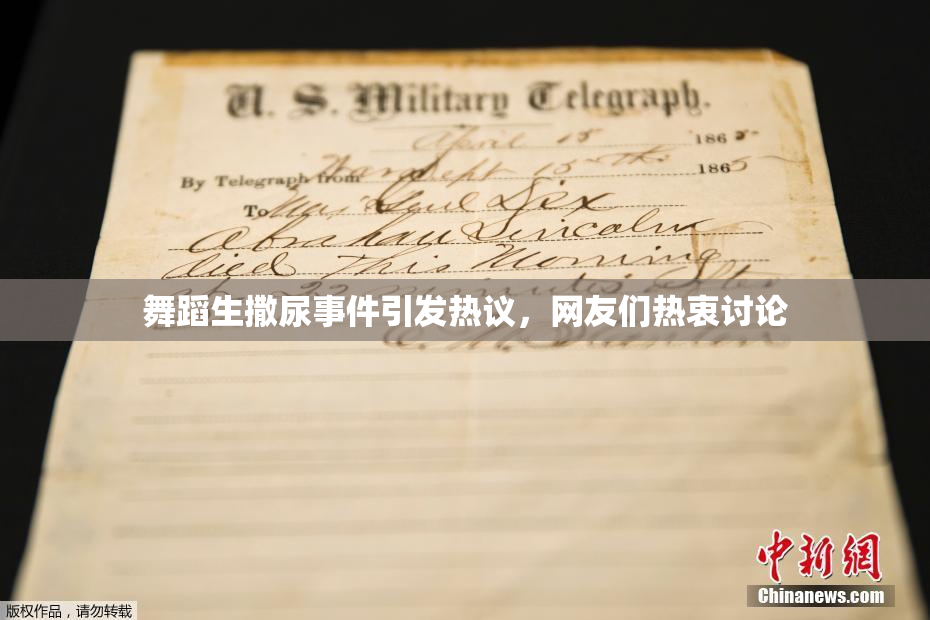 U. S. Military Telegraph.
April 15 1865
By Telegraph from War Dept 15th 1865
To Maj Genl Dix
Abraham Lincoln
died This Morning
at 22 minutes after
舞蹈生撒尿事件引发热议，网友们热衷讨论
E. M. Stanton
中新网
Chinanews.com
版权作品，请勿转载